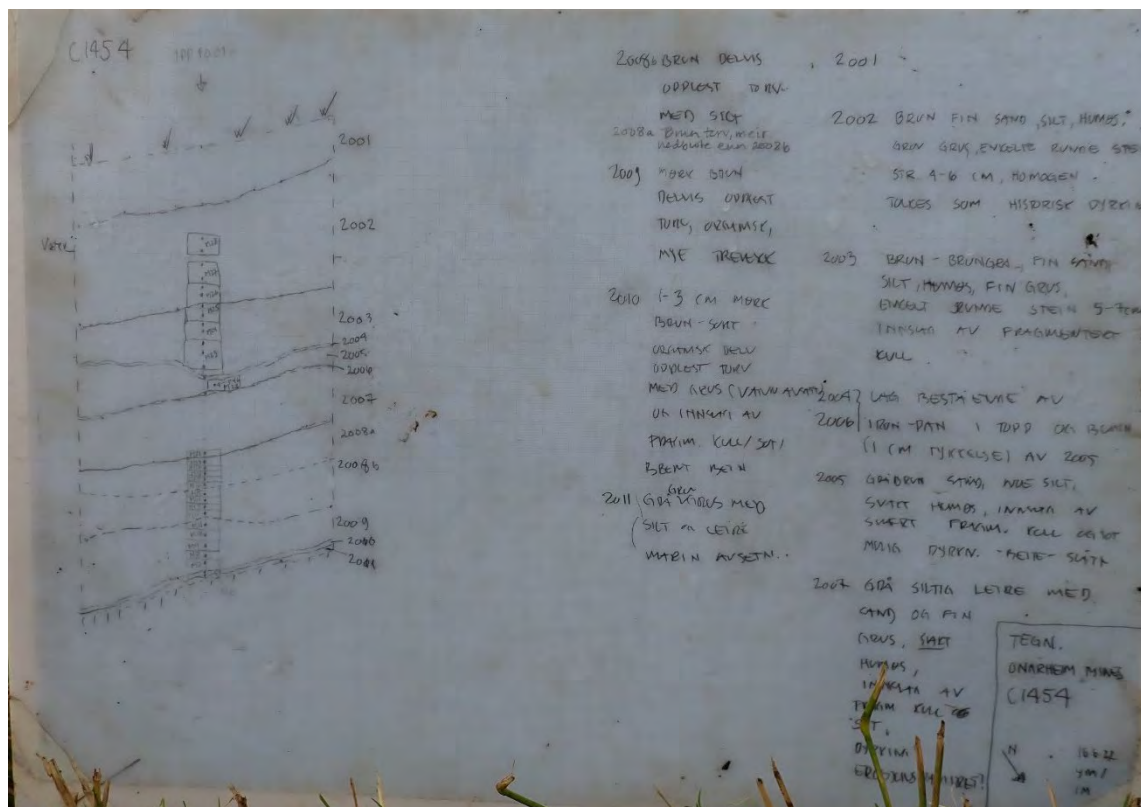 C1454
2001
2002
2003
2004
2005
2006
2007
2008a
2008b
2009
2010
2011
2008b BRUN DELVIS
OPPLØST TORV
MED SILT
2008a Brun torv, meir
nedbrote enn 2008b
2009 MØRK BRUN
DELVIS OPPLØST
TORV, ORGANISK,
MYE TREVERK
2010 1-3 CM MØRK
BRUN-SORT
ORGANISK DELV
OPPLØST TORV
MED GRUS (VANN AVSATT)
OG INNSLAG AV
FRAGM. KULL/SOT/
BRENT BEIN
2011 GRÅ GRUS MED
SILT OG LEIRE
MARIN AVSETN..
2001
2002 BRUN FIN SAND, SILT, HUMUS,
GROV GRUS, ENKELTE RUNDE STE
STR 4-6 CM, HOMOGEN.
TOLKES SOM HISTORISK DYRKIN
2003 BRUN-BRUNGRÅ, FIN SAND,
SILT, HUMUS, FIN GRUS,
ENKELT RUNDE STEIN 5-7cm
INNSLAG AV FRAGMENTERT
KULL
2004 LAG BESTÅENDE AV
2006 IRON-PAN I TOPP OG BUNN
(1 CM TYKKELSE) AV 2005
2005 GRÅBRUN SAND, NOE SILT,
SVAKT HUMUS, INNSLAG AV
SVÆRT FRAGM. KULL OG SOT
MULIG DYRKN. -BEITE- SLÅTT
2007 GRÅ SILTIG LEIRE MED
SAND OG FIN
GRUS, SVAKT
HUMUS,
INNSLAG AV
FRAGM KULL OG
SOT,
DYRKING
TEGN.
ONARHEIM, MING
C1454
N
16.6.22